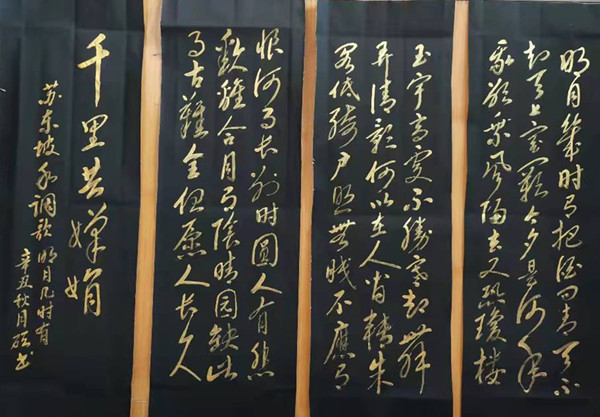 明月幾时有把酒问青天不
知天上宫闕今夕是何年
我欲乘风归去又恐瓊楼
玉宇高处不勝寒起舞
弄清影何以在人间轉朱
阁低绮户照無眠不應有
恨何事长别时圓人有悲
歡離合月有陰晴园缺此
事古難全但愿人长久
千里共嬋娟
苏东坡水调歌 明月几时有
辛丑秋月书